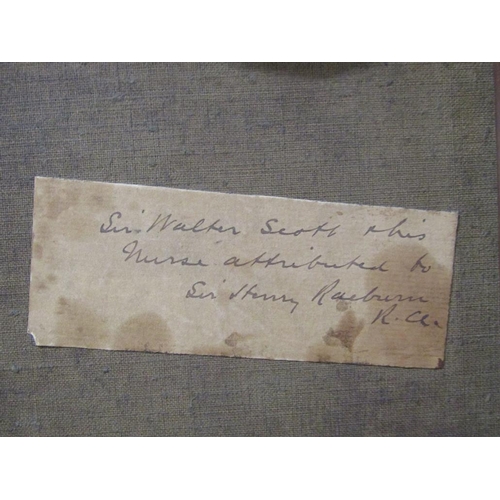 Sir Walter Scott & his
Nurse attributed to
Sir Henry Raeburn
R.A.